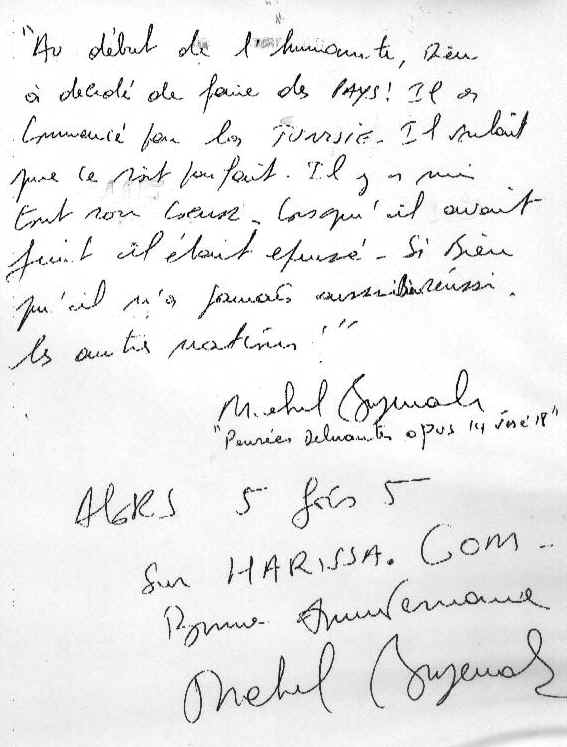 "Au début de l'humanité, Dieu
a décidé de faire des PAYS! Il a
Commencé par la TUNISIE. Il voulait
que ce soit parfait. Il y a mis
tout son coeur. Lorsqu'il avait
finit il était epuisé - Si Bien
qu'il n'a jamais aussi bien réussi
les autres nations!"
Michel Boujenah
"Pensées delirantes opus 14 versé 18"
AlORS 5 fois 5
Sur HARISSA. COM -
Bonne Anniversaire
Michel Boujenah